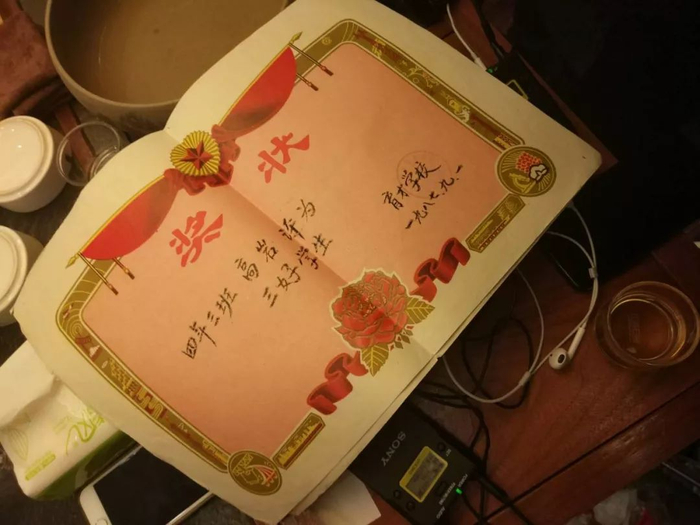 奖状
四年三班 高岩 评为
三好学生
育才学校
一九八七.九.一
SONY